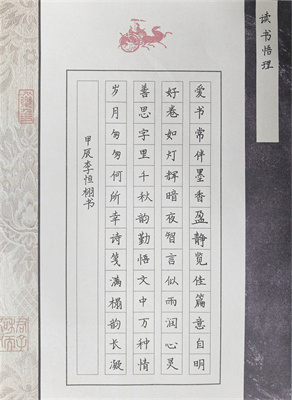 读书悟理
爱书常伴墨香盈静览佳篇意自明
好卷如灯辉暗夜智言似雨润心灵
善思字里千秋韵勤悟文中万种情
岁月匆匆何所幸诗笺满榻韵长凝
甲辰李恒栩书